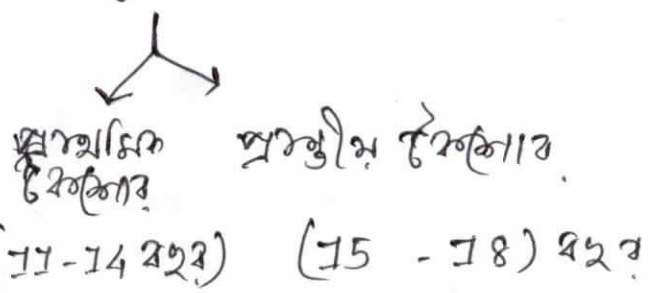 প্রাথমিক প্রান্তীয় কৈশোর
কৈশোর
(11-14 বছর) (15 - 18) বছর